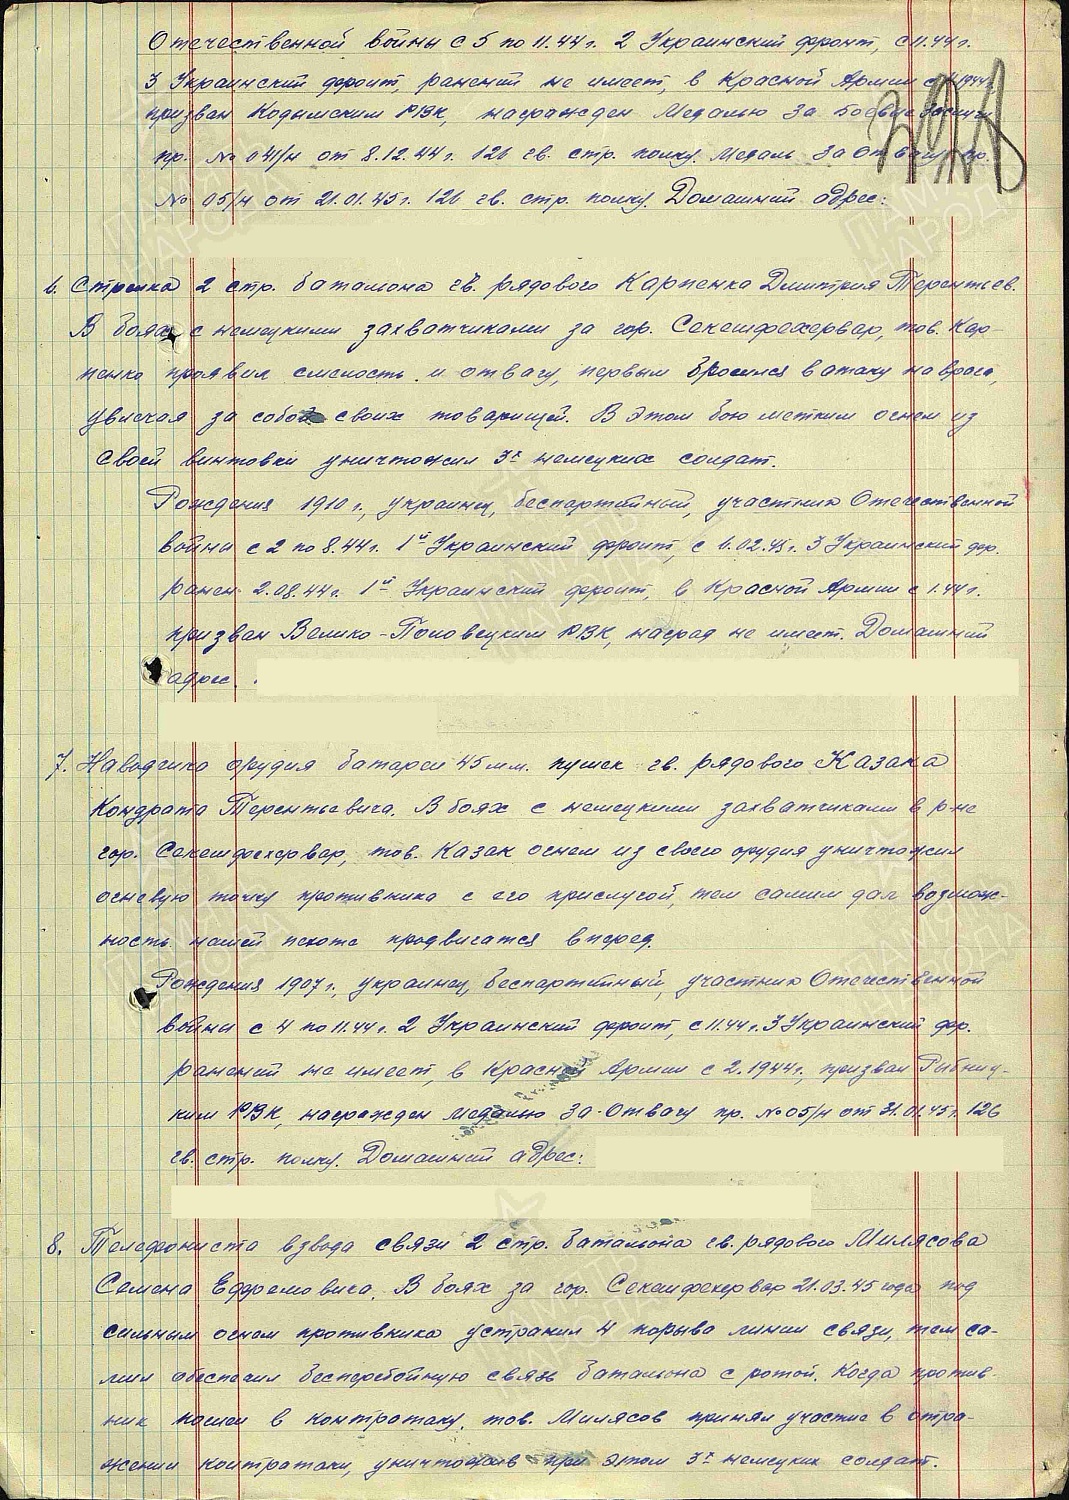 Отечественной войны с 5 по 11.44 г. 2 Украинский фронт, с 11.44 г.
3 Украинский фронт, ранений не имеет, в Красной Армии с 4.1944 г.
призван Кодымским РВК, награжден Медалью За боевые заслуги
пр. № 041/н от 8.12.44 г. 126 гв. стр. полку. Медаль За Отвагу пр.
№ 05/н от 21.01.45 г. 126 гв. стр. полку. Домашний адрес:
6. Стрелка 2 стр. батальона гв. рядового Карпенка Дмитрия Терентьев.
В боях с немецкими захватчиками за гор. Секешфехервар, тов. Кар-
пенко проявил смелость и отвагу, первым бросился в атаку на врага,
увлекая за собой своих товарищей. В этом бою метким огнем из
своей винтовки уничтожил 3х немецких солдат.
Рождения 1910 г., украинец, беспартийный, участник Отечественной
войны с 2 по 8.44 г. 1й Украинский фронт, с 6.02.45 г. 3 Украинский фр.
ранен 2.08.44 г. 1й Украинский фронт, в Красной Армии с 1.44 г.
призван Велико-Половецким РВК, наград не имеет. Домашний
адрес.
7. Наводчика орудия батареи 45 мм. пушек гв. рядового Казака
Кондрата Терентьевича. В боях с немецкими захватчиками в р-не
гор. Секешфехервар, тов. Казак огнем из своего орудия уничтожил
огневую точку противника с его прислугой, тем самим дал возмож-
ность нашей пехоте продвигатся вперед.
Рождения 1907 г., украинец, беспартийный, участник Отечественной
войны с 4 по 11.44 г. 2 Украинский фронт, с 11.44 г. 3 Украинский фр.
ранений не имеет, в Красной Армии с 2.1944 г., призван Рибниц-
ким РВК, награжден медалью За Отвагу пр. № 05/н от 31.01.45 г. 126
гв. стр. полку. Домашний адрес:
8. Телефониста взвода связи 2 стр. батальона гв. рядового Милясова
Семена Ефремовича. В боях за гор. Секешфехервар 21.03.45 года под
сильным огнем противника устранил 4 порыва линии связи, тем са-
мим обеспечил бесперебойную связь батальона с ротой. Когда против-
ник пошел в контратаку, тов. Милясов принял участие в отра-
жении контратаки, уничтожив при этом 3х немецких солдат.